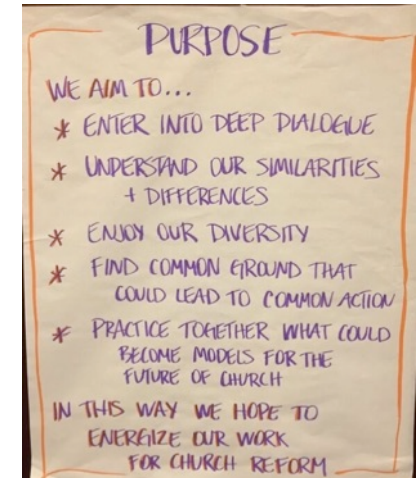 PURPOSE
WE AIM TO...
* ENTER INTO DEEP DIALOGUE
* UNDERSTAND OUR SIMILARITIES
+ DIFFERENCES
* ENJOY OUR DIVERSITY
* FIND COMMON GROUND THAT
COULD LEAD TO COMMON ACTION
* PRACTICE TOGETHER WHAT COULD
BECOME MODELS FOR THE
FUTURE OF CHURCH
IN THIS WAY WE HOPE TO
ENERGIZE OUR WORK
FOR CHURCH REFORM